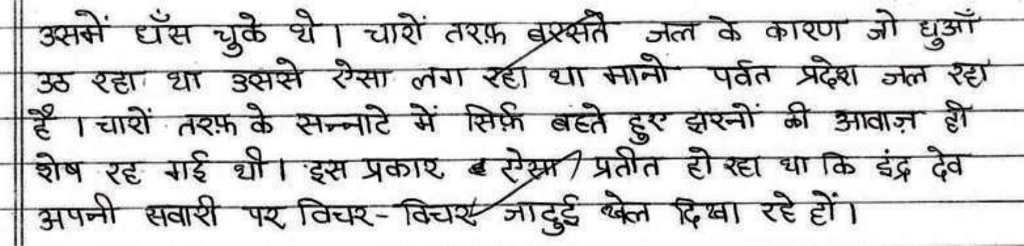 उसमें धँस चुके थे। चारों तरफ़ बरसते जल के कारण जो धुआँ
उठ रहा था उससे ऐसा लग रहा था मानो पर्वत प्रदेश जल रहा
है। चारों तरफ़ के सन्नाटे में सिर्फ़ बहते हुए झरनों की आवाज़ ही
शेष रह गई थी। इस प्रकार ऐसा प्रतीत हो रहा था कि इंद्र देव
अपनी सवारी पर विचर-विचर जादुई खेल दिखा रहे हों।